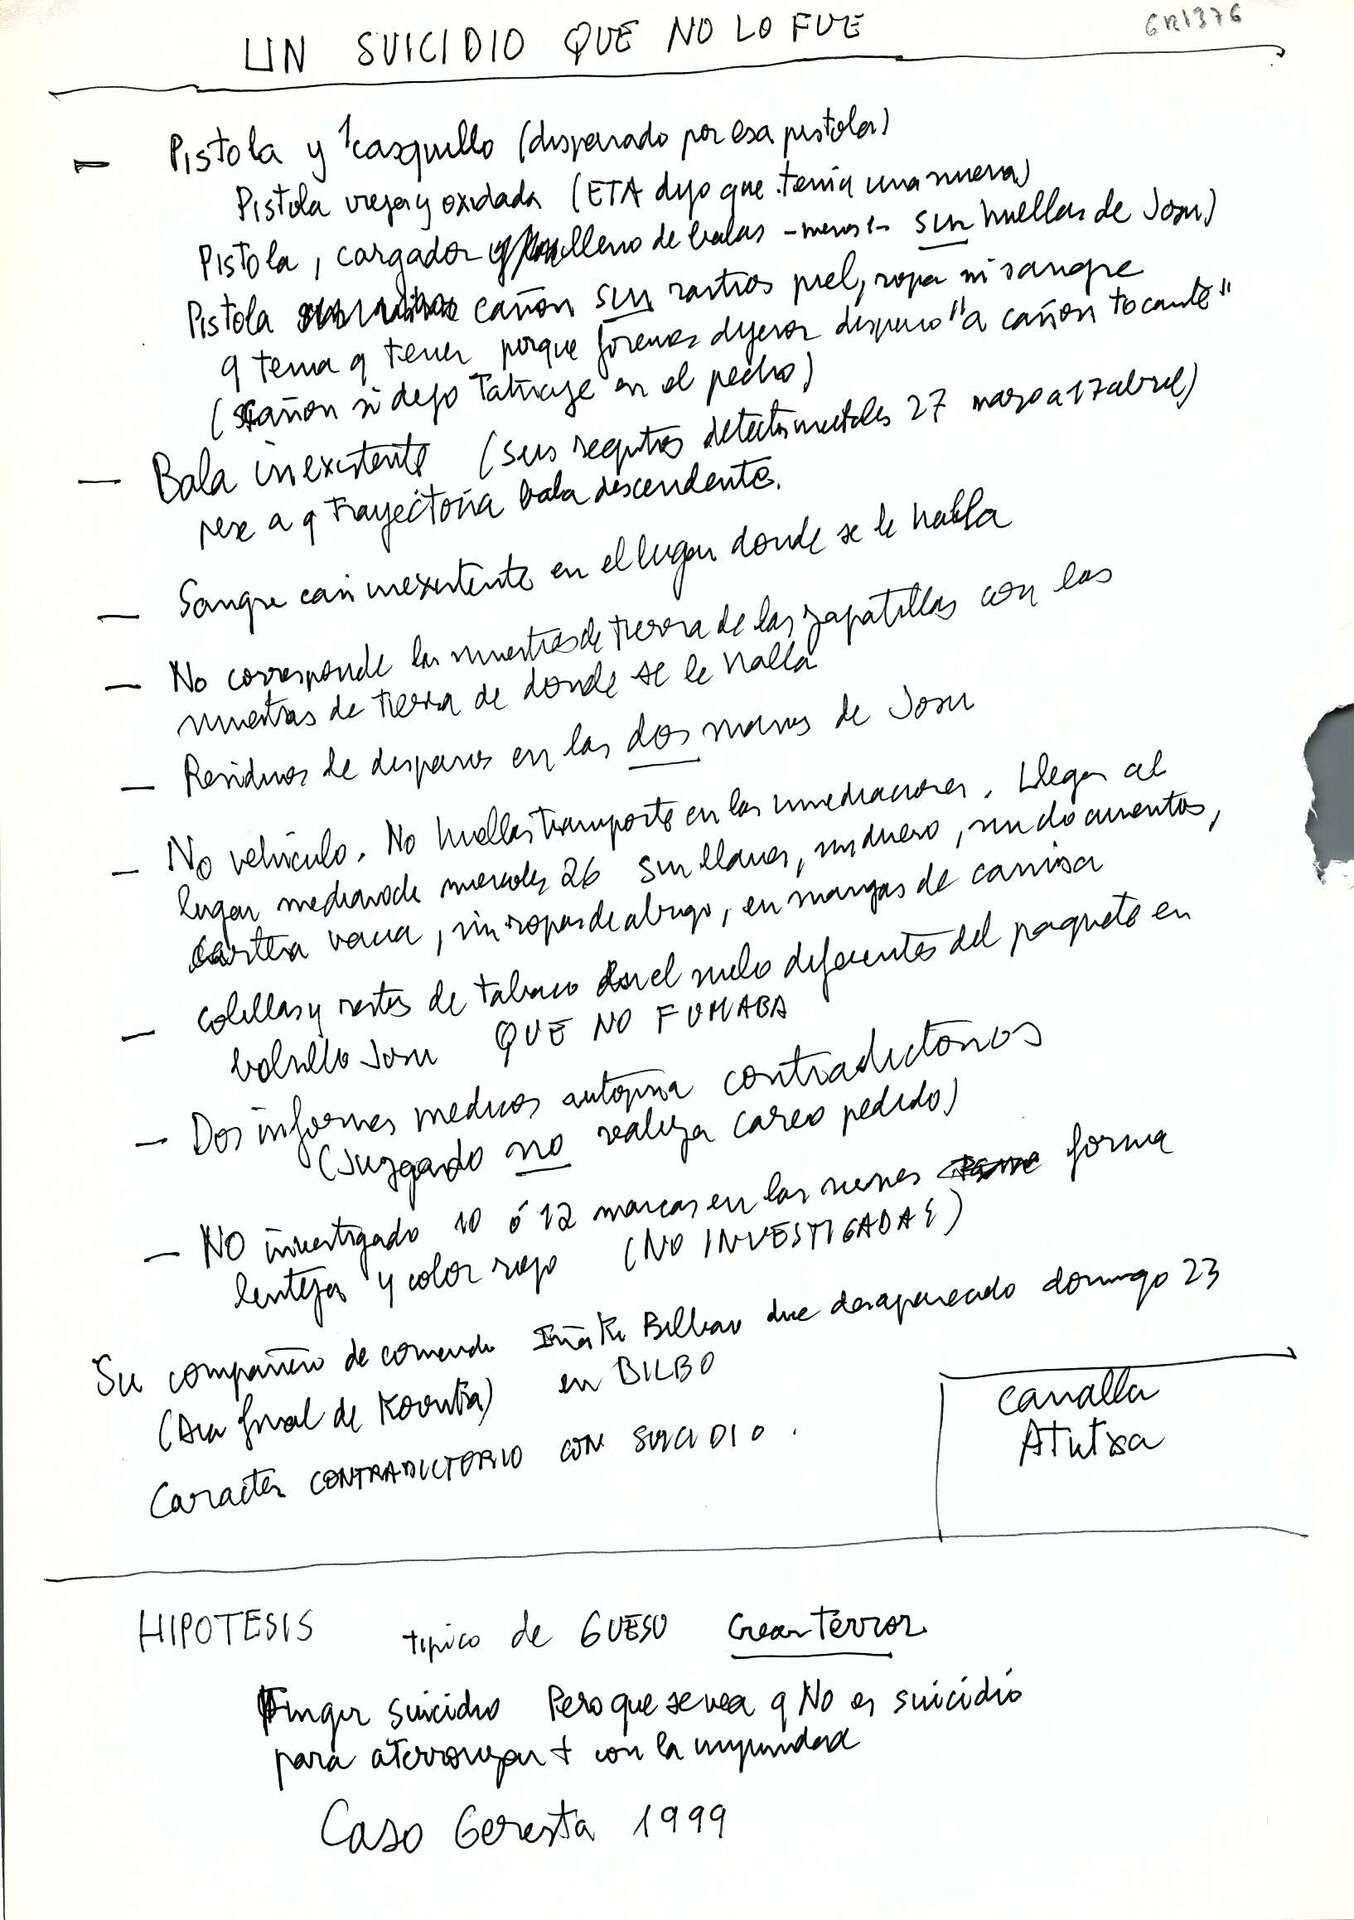 GR1376
UN SUICIDIO QUE NO LO FUE
— Pistola y 1 casquillo (disparado por esa pistola)
Pistola vieja y oxidada (ETA dijo que tenia una nueva)
Pistola, cargador lleno de balas -menos 1- sin huellas de Josu)
Pistola cañon sin rastros piel, ropa ni sangre
q tenia q tener porque forenses dijeron disparo "a cañon tocante"
(cañon si dejo tatuaje en el pecho)
— Bala inexistente (seis registros detectormetales 27 marzo a 17 abril)
pese a q trayectoria bala descendente.
— Sangre casi inexistente en el lugar donde se le halla
— No corresponde las muestras de tierra de las zapatillas con las
muestras de tierra de donde se le halla
— Residuos de disparos en las dos manos de Josu
— No vehiculo. No huellas transporte en las inmediaciones. Llegar al
lugar medianoche miercoles 26 sin llaves, sin dinero, sin documentos,
cartera vacia, sin ropas de abrigo, en mangas de camisa
— colillas y restos de tabaco en el suelo diferentes del paquete en
bolsillo Josu QUE NO FUMABA
— Dos informes medicos autopsia contradictorios
(Juzgado no realiza careo pedido)
— NO investigado 10 ó 12 marcas en las forma
lentejas y color rojo (NO INVESTIGADAS)
Su compañero de comando Iñaki Bilbao dice desaparecido domingo 23
(Dia final de Korrika) en BILBO
Caracter CONTRADICTORIO CON SUICIDIO.
canalla
Atutxa
HIPOTESIS tipico de GUESU Crear terror
Fingir suicidio Pero que se vea q No es suicidio
para aterrorizar + con la impunidad
Caso Geresta 1999